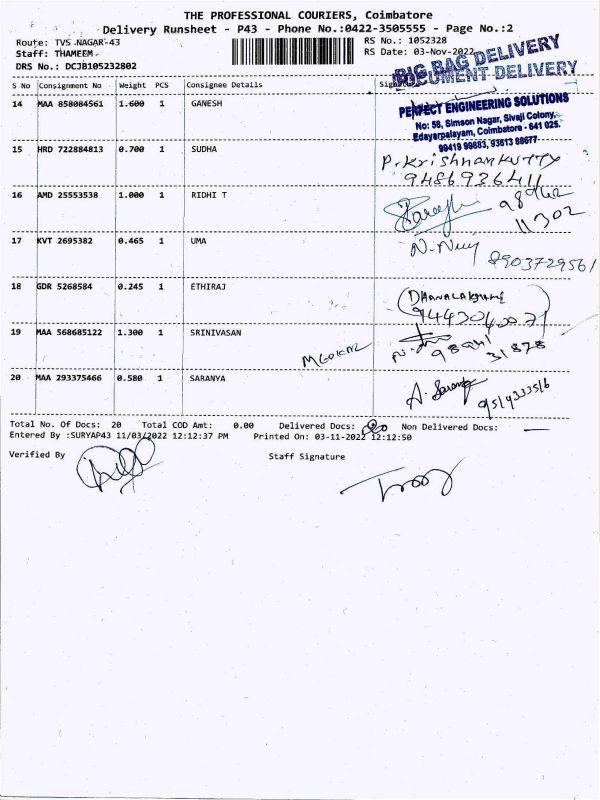 THE PROFESSIONAL COURIERS, Coimbatore
Delivery Runsheet - P43 - Phone No.:0422-3505555 - Page No.:2
Route: TVS NAGAR-43 RS No.: 1052328
Staff: THAMEEM RS Date: 03-Nov-2022
DRS No.: DCJB105232802
BIG BAG DELIVERY
DOCUMENT DELIVERY
S No Consignment No Weight PCS Consignee Details Signature
14 MAA 858084561 1.600 1 GANESH
PERFECT ENGINEERING SOLUTIONS
No: 58, Simson Nagar, Sivaji Colony,
Edayarpalayam, Coimbatore - 641 025.
99419 99683, 93613 88677
15 HRD 722884813 0.700 1 SUDHA
P. Krishnankutty
9486936411
16 AMD 25553538 1.000 1 RIDHI T
11302
17 KVT 2695382 0.465 1 UMA
8903729561
18 GDR 5268584 0.245 1 ETHIRAJ
DHANALAKSHMI
9443040071
19 MAA 568685122 1.300 1 SRINIVASAN
31878
20 MAA 293375466 0.580 1 SARANYA
A. Saranya
Total No. Of Docs: 20 Total COD Amt: 0.00 Delivered Docs: Non Delivered Docs:
Entered By :SURYAP43 11/03/2022 12:12:37 PM Printed On: 03-11-2022 12:12:50
Verified By Staff Signature